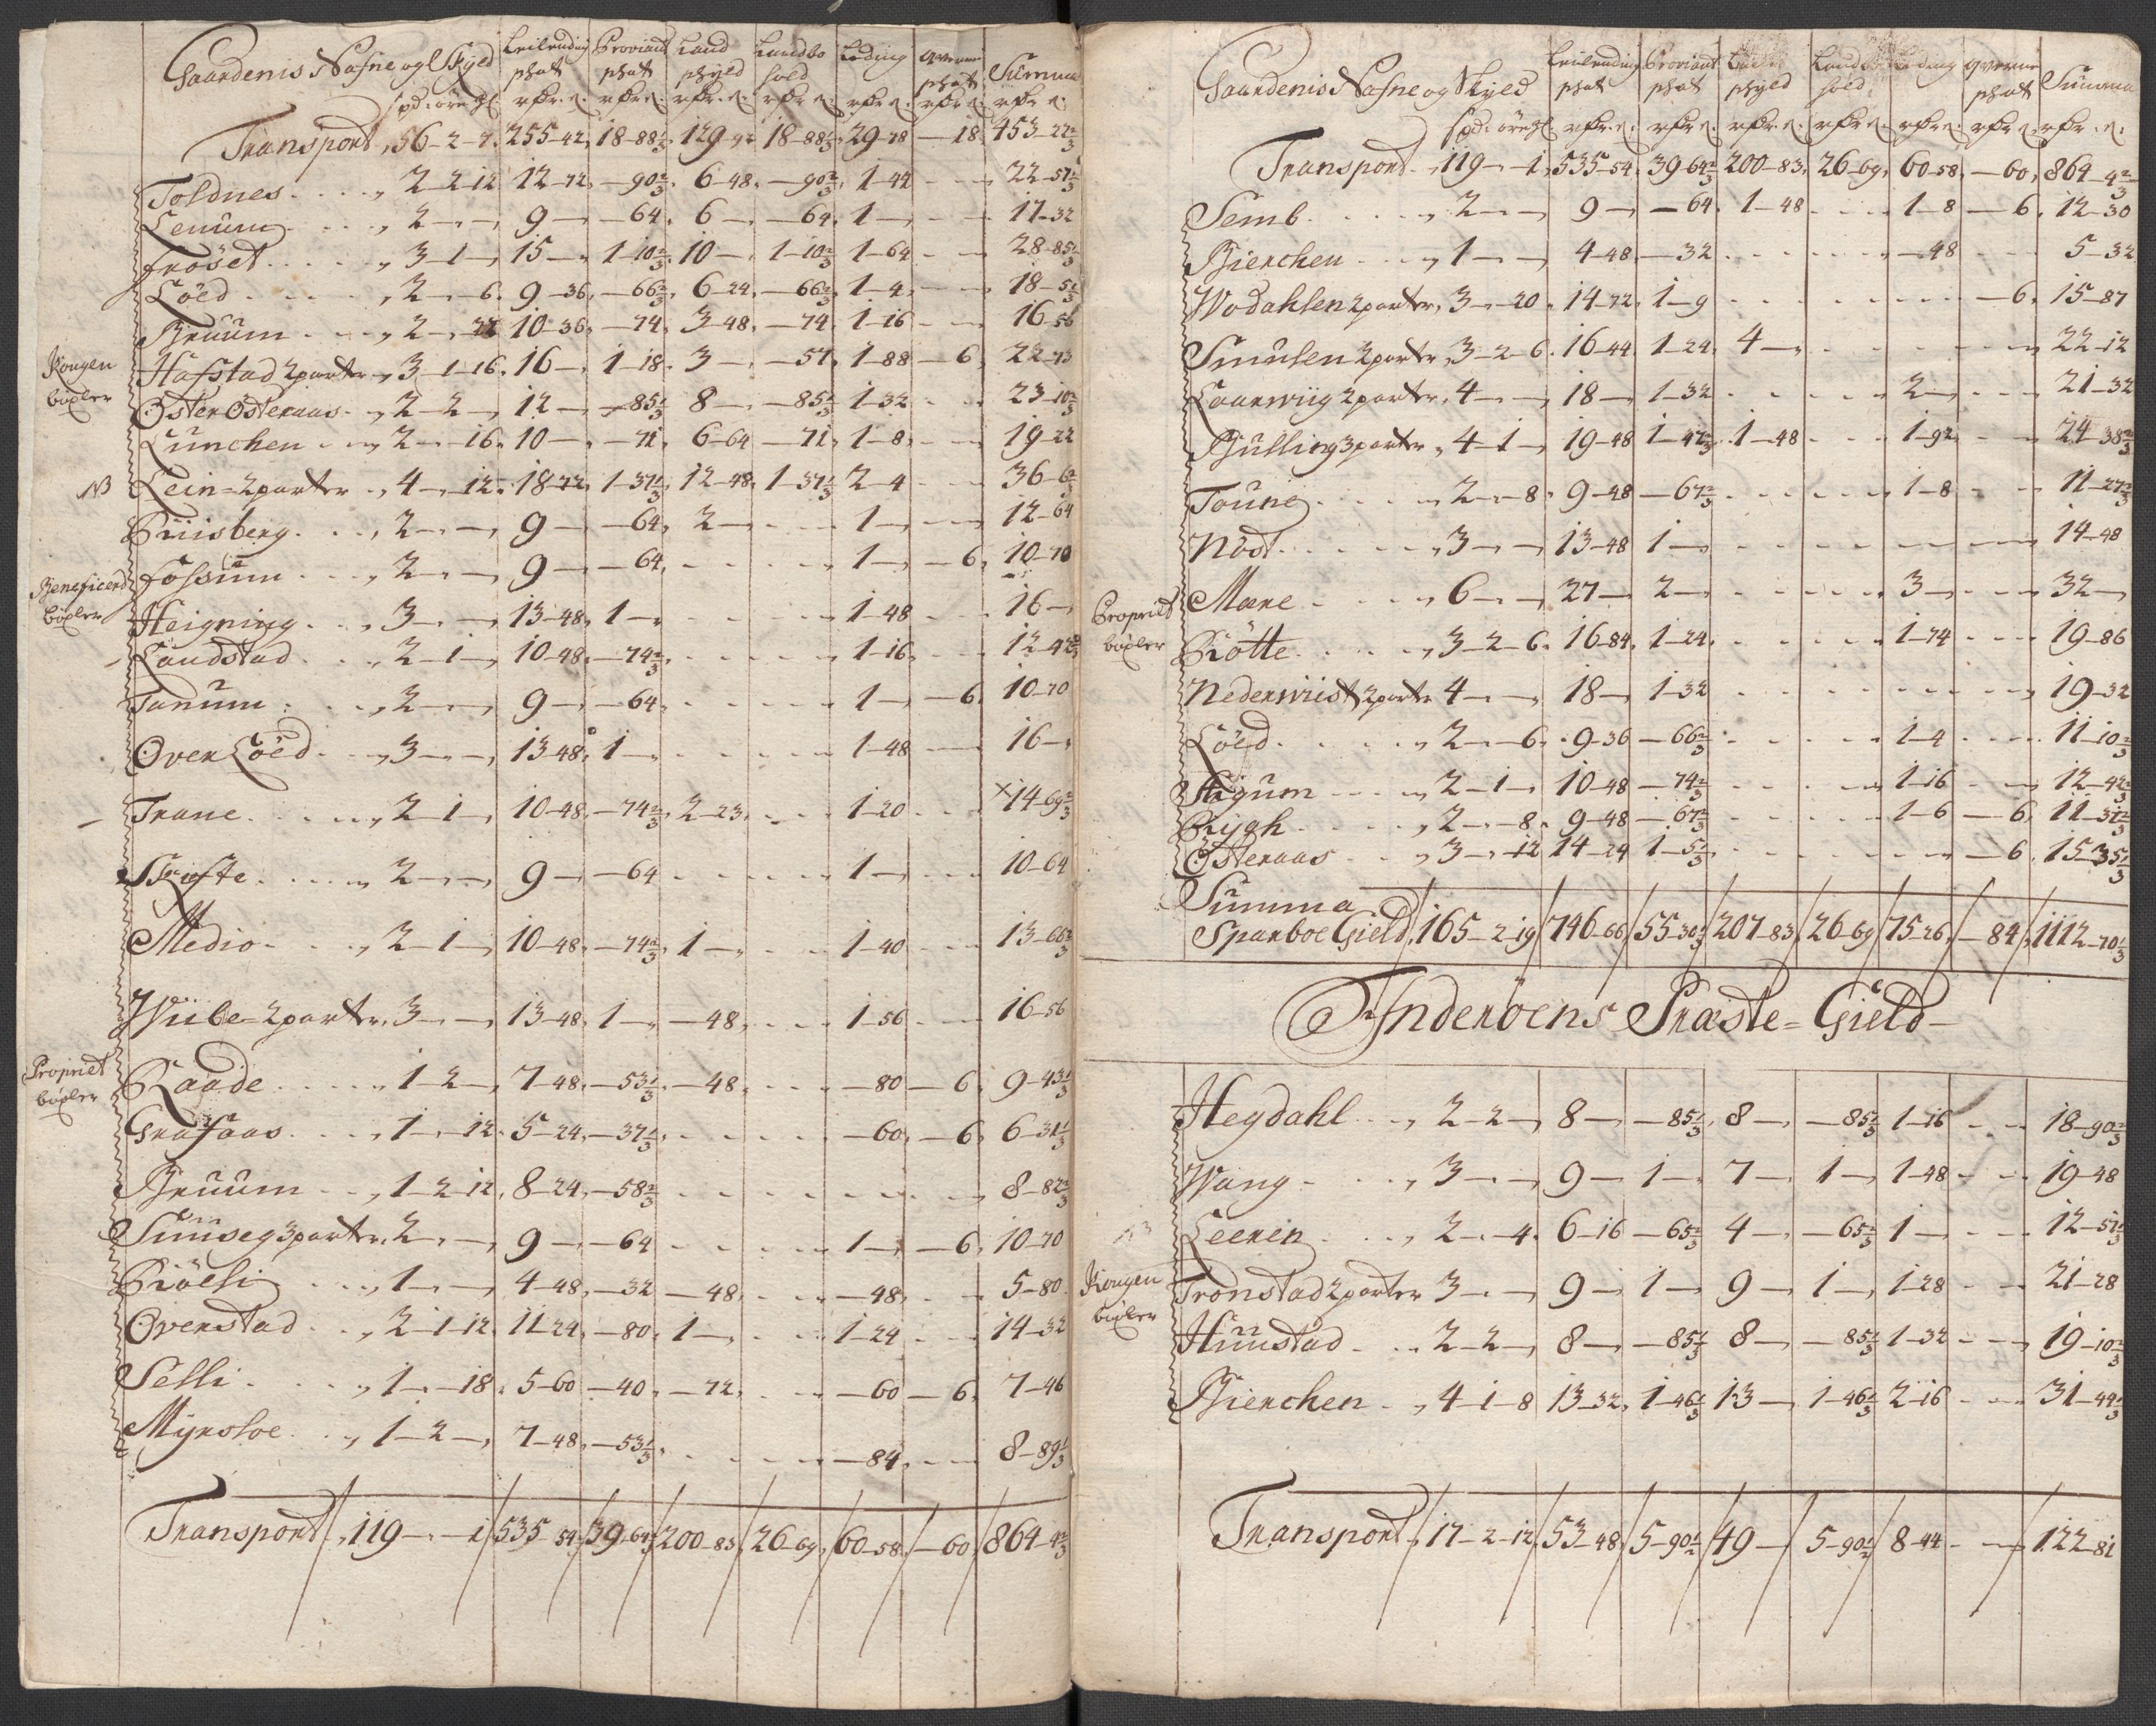 Gaardenis Nafne og Skyld | Leilending skat | Proviant skat | Land skyld | Landbo hold | Leding | qverne skat | Summa
Transport 56-2-7 255-42 18-88⅓ 129-92 18-88⅓ 29-78 -18 453-22⅔
Toldnes 2-2-12 12-72 -90⅔ 6-48 -90⅔ 1-44 22-57⅓
Lenum 2 9 -64 6 -64 1 17-32
Fröset 3-1 15 1-10⅔ 10 1-10⅔ 1-64 28-85⅓
Löed 2-6 9-36 -66⅔ 6-24 -66⅔ 1-4 18-5⅓
Bruum 2-22 10-36 -74 3-48 -74 1-16 16-56
Kongen böxler
Hafstad 2parter 3-1-16 16 1-18 3 -57 1-88 -6 22-73
Öster Österaas 2-2 12 -85⅓ 8 -85⅓ 1-32 23-10⅔
Lunchen 2-16 10 -71 6-64 -71 1-8 19-22
NB Lein-2parter 4-12 18-72 1-37⅓ 12-48 1-37⅓ 2-4 36-6⅔
Riisberg 2 9 -64 2 1 12-64
Fossum 2 9 -64 1 -6 10-70
Beneficerd böxler
Heigning 3 13-48 1 1-48 16
Laudstad 2-1 10-48 -74⅔ 1-16 12-42⅔
Tanum 2 9 -64 1 -6 10-70
Over Löed 3 13-48 1 1-48 16
Trane 2-1 10-48 -74⅔ 2-23 1-20 ×14-69⅔
Skofte 2 9 -64 1 10-64
Medio 2-1 10-48 -74⅔ 1 1-40 13-66⅔
Wiibe-2parter 3 13-48 1 -48 1-56 16-56
Propriet böxler
Raade 1-2 7-48 -53⅓ -48 -80 -6 9-43⅓
Grafaas 1-12 5-24 -37⅓ -60 -6 6-31⅓
Bruum 1-2-12 8-24 -58⅔ 8-82⅔
Suuseg 3parter 2 9 -64 1 -6 10-70
Röesi 1 4-48 -32 -48 -48 5-80
Overstad 2-1-12 11-24 -80 1 1-24 14-32
Selli 1-18 5-60 -40 -72 -60 -6 7-46
Myrsloe 1-2 7-48 -53⅓ -84 8-89⅓
Transport 119-1 535-54 39-64⅔ 200-83 26-69 60-58 -60 864-4⅔
Gaardenis Nafne og Skyld | Leilending skat | Proviant skat | skyld | Land hold | Leding | qverne skat | Summa
Transport 119-1 535-54 39-64⅔ 200-83 26-69 60-58 -60 864-4⅔
Semb 2 9 -64 1-48 1-8 -6 12-30
Bierchen 1 4-48 -32 -48 5-32
Wodahlen 2parter 3-20 14-72 1-9 -6 15-87
Smulen 2parter 3-2-6 16-44 1-24 4 22-12
Laarwiig 2parter 4 18 1-32 2 21-32
Bulling 3parter 4-1 19-48 1-42⅔ 1-48 1-92 24-38⅔
Toune 2-8 9-48 -67⅔ 1-8 11-27⅔
Nöst 3 13-48 1 14-48
Propriet böxler
Mære 6 27 2 3 32
Rötte 3-2-6 16-84 1-24 1-74 19-86
Nederwiist 2parter 4 18 1-32 19-32
Löed 2-6 9-36 -66⅔ 1-4 11-10⅔
Stigum 2-1 10-48 -74⅔ 1-16 12-42⅔
Rygh 2-8 9-48 -67⅔ 1-6 -6 11-31⅔
Österaas 3-12 14-24 1-5⅓ -6 15-35⅓
Summa
Sparboe Gield 165-2-19 746-66 55-30⅓ 207-83 26-69 75-26 -84 1112-70⅓
Inderöens Præste-Gield
Hegdahl 2-2 8 -85⅓ 8 -85⅓ 1-16 18-90⅔
Wang 3 9 1 7 1 1-48 19-48
Leeren 2-4 6-16 -65⅔ 4 -65⅔ 1 12-51⅓
Kongen böxler
Tronstad 2parter 3 9 1 9 1 1-28 21-28
Huustad 2-2 8 -85⅓ 8 -85⅓ 1-32 19-10⅔
Bierchen 4-1-8 13-32 1-46⅓ 13 1-46⅓ 2-16 31-44⅔
Transport 17-2-12 53-48 5-90½ 49 5-90½ 8-44 122-81